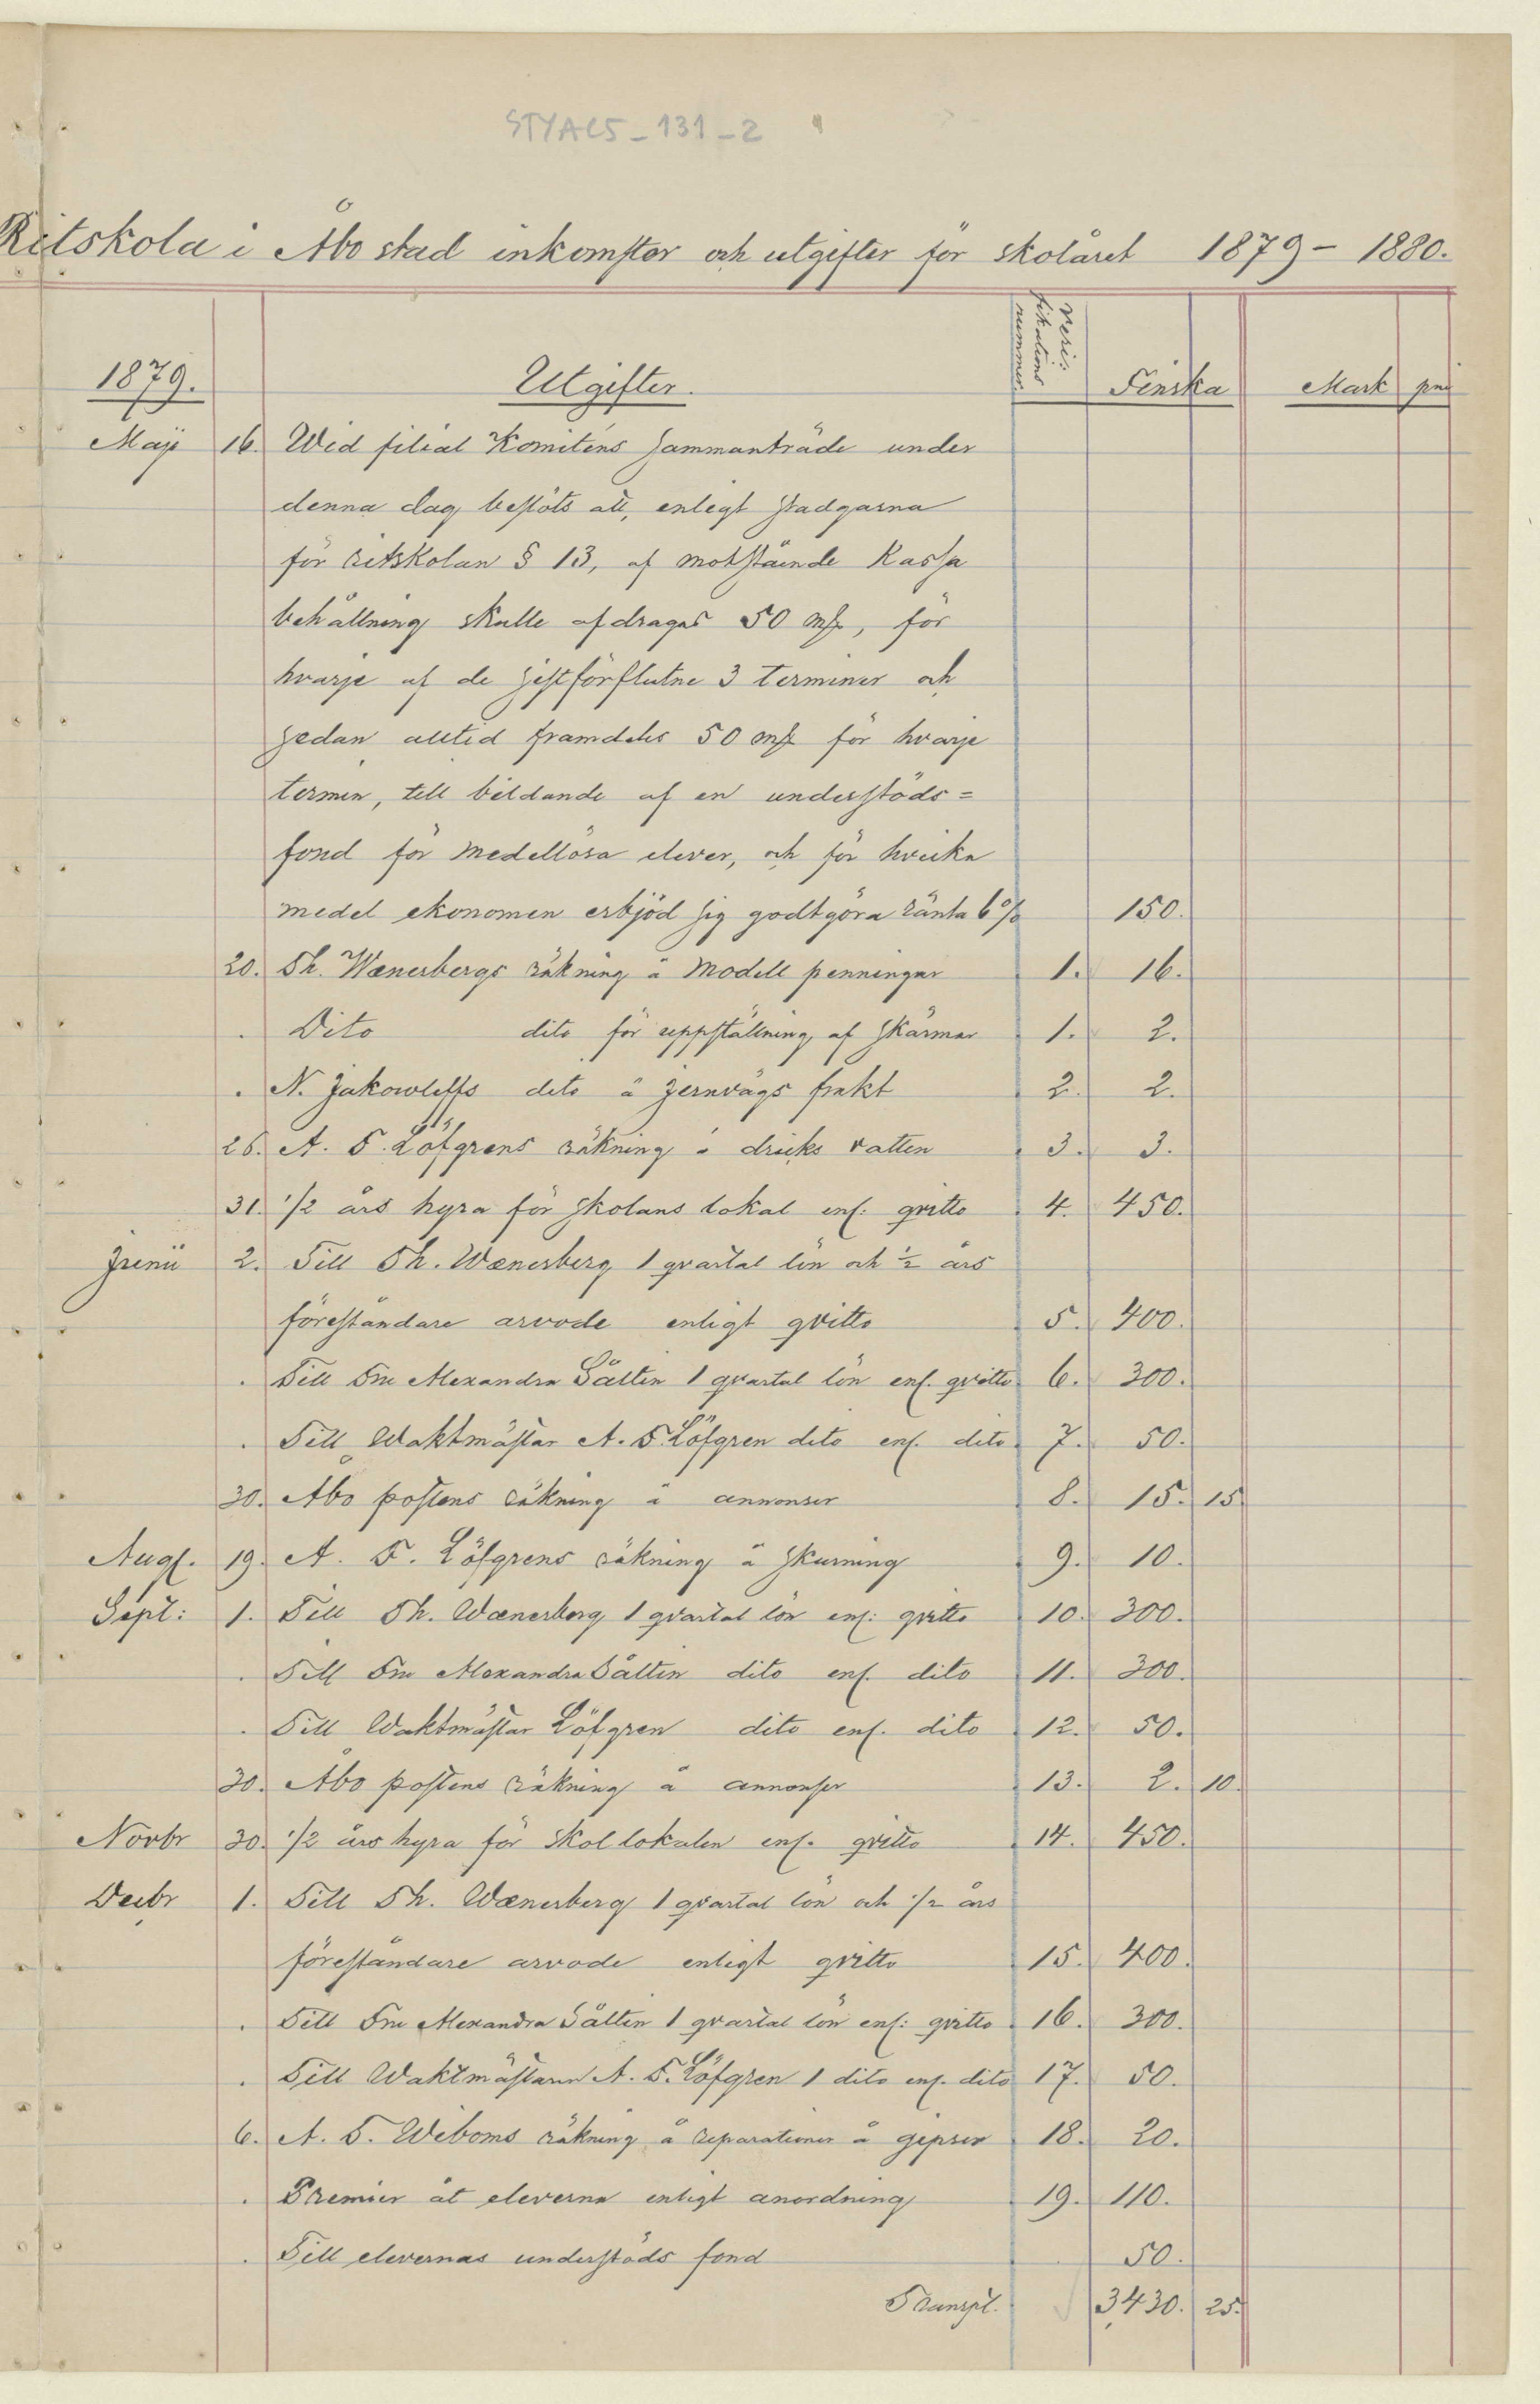 STYAC5_131_2
Ritskola i Åbo stad inkomster och utgifter för skolåret 1879 – 1880.
Veri-
fikations
nummer.
1879. Utgifter. Finska Mark pni
Maji 16. Wid filial Komiténs sammanträde under
denna dag beslöts att, enligt stadgarna
för ritskolan § 13, af motstående Kassa
behållning skulle afdragas 50 mk, för
hvarje af de sistförflutne 3 terminer och
sedan alltid framdeles 50 mk för hvarje
termin, till bildande af en understöds=
fond för medellösa elever, och för hvilka
medel ekonomen erbjöd sig godtgöra ränta 6% 150.
20. Th. Wænerbergs räkning å Modell penningar 1. 16.
. Dito dito för uppställning af skärmar 1. 2.
. N. Jakowleffs dito å jernvägs frakt 2. 2.
26. A. F. Löfgrens räkning å dricks vatten 3. 3.
31. 1/2 års hyra för skolans lokal enl: qvitto 4. 450.
Junii 2. Till Th. Wænerberg 1 qvartal lön och 1/2 års
föreståndare arvode enligt qvitto 5. 400.
. Till Frn Alexandra Såltin 1 qvartal lön enl. qvitto 6. 300.
. Till Waktmästar A. F. Löfgren dito enl. dito 7. 50.
30. Åbo postens räkning å annonser 8. 15. 15
Aug. 19. A. F. Löfgrens räkning å skurning 9. 10.
Sept: 1. Till Th. Wænerberg 1 qvartal lön enl: qvitto 10. 300.
. Till Frn Alexandra Såltin dito enl. dito 11. 300.
. Till Waktmästar Löfgren dito enl. dito 12. 50.
30. Åbo postens räkning å annonser 13. 2. 10.
Novbr 30. 1/2 års hyra för skollokalen enl. qvitto 14. 450.
Decbr 1. Till Th. Wænerberg 1 qvartal lön och 1/2 års
föreståndare arvode enligt qvitto 15. 400.
. Till Frn Alexandra Såltin 1 qvartal lön enl: qvitto 16. 300.
. Till Waktmästaren A. F. Löfgren 1 dito enl. dito 17. 50.
6. A. F. Weboms räkning å reparationer å gipser 18. 20.
. Premier åt eleverna enligt anordning 19. 110.
. Till elevernas understöds fond 50.
Transpt. 3430. 25.